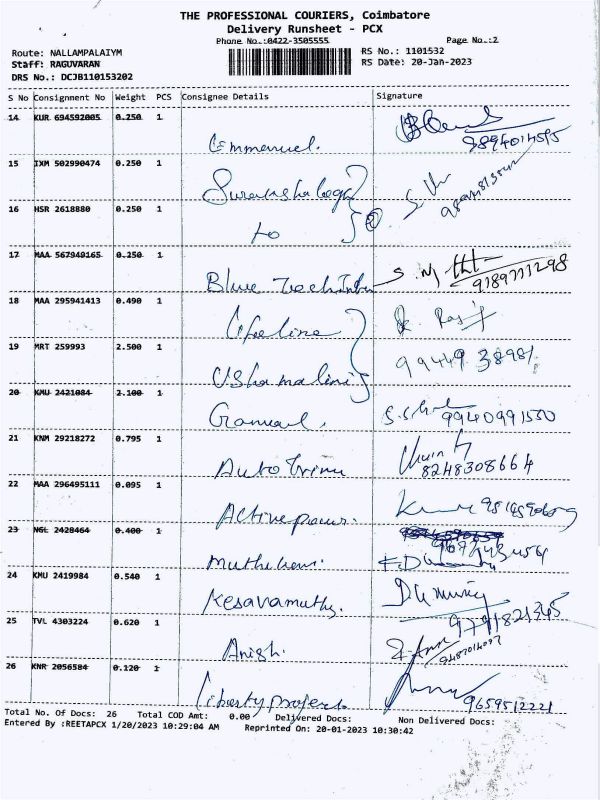 THE PROFESSIONAL COURIERS, Coimbatore
Delivery Runsheet - PCX
Phone No.:0422-3505555 Page No.:2
Route: NALLAMPALAIYM RS No.: 1101532
Staff: RAGUVARAN RS Date: 20-Jan-2023
DRS No.: DCJB110153202
S No Consignment No Weight PCS Consignee Details Signature
14 KUR 694592005 0.250 1 Emmanuel. 9894014595
15 IXM 502990474 0.250 1
16 HSR 2618880 0.250 1 to
17 MAA 567949165 0.250 1 Blue Tech 9189771298
18 MAA 295941413 0.490 1 Lifeline
19 MRT 259993 2.500 1 Usha malini 99449 38981
20 KMU 2421084 2.100 1 9940991550
21 KNM 29218272 0.795 1 Auto Trinu 8248308664
22 MAA 296495111 0.095 1 Active power.
23 NGL 2428464 0.400 1
24 KMU 2419984 0.540 1 Kesavamuthy.
25 TVL 4303224 0.620 1 Anish. 9791821345
26 KNR 2056584 0.120 1 Liberty project 9659512221
Total No. Of Docs: 26 Total COD Amt: 0.00 Delivered Docs: Non Delivered Docs:
Entered By :REETAPCX 1/20/2023 10:29:04 AM Reprinted On: 20-01-2023 10:30:42